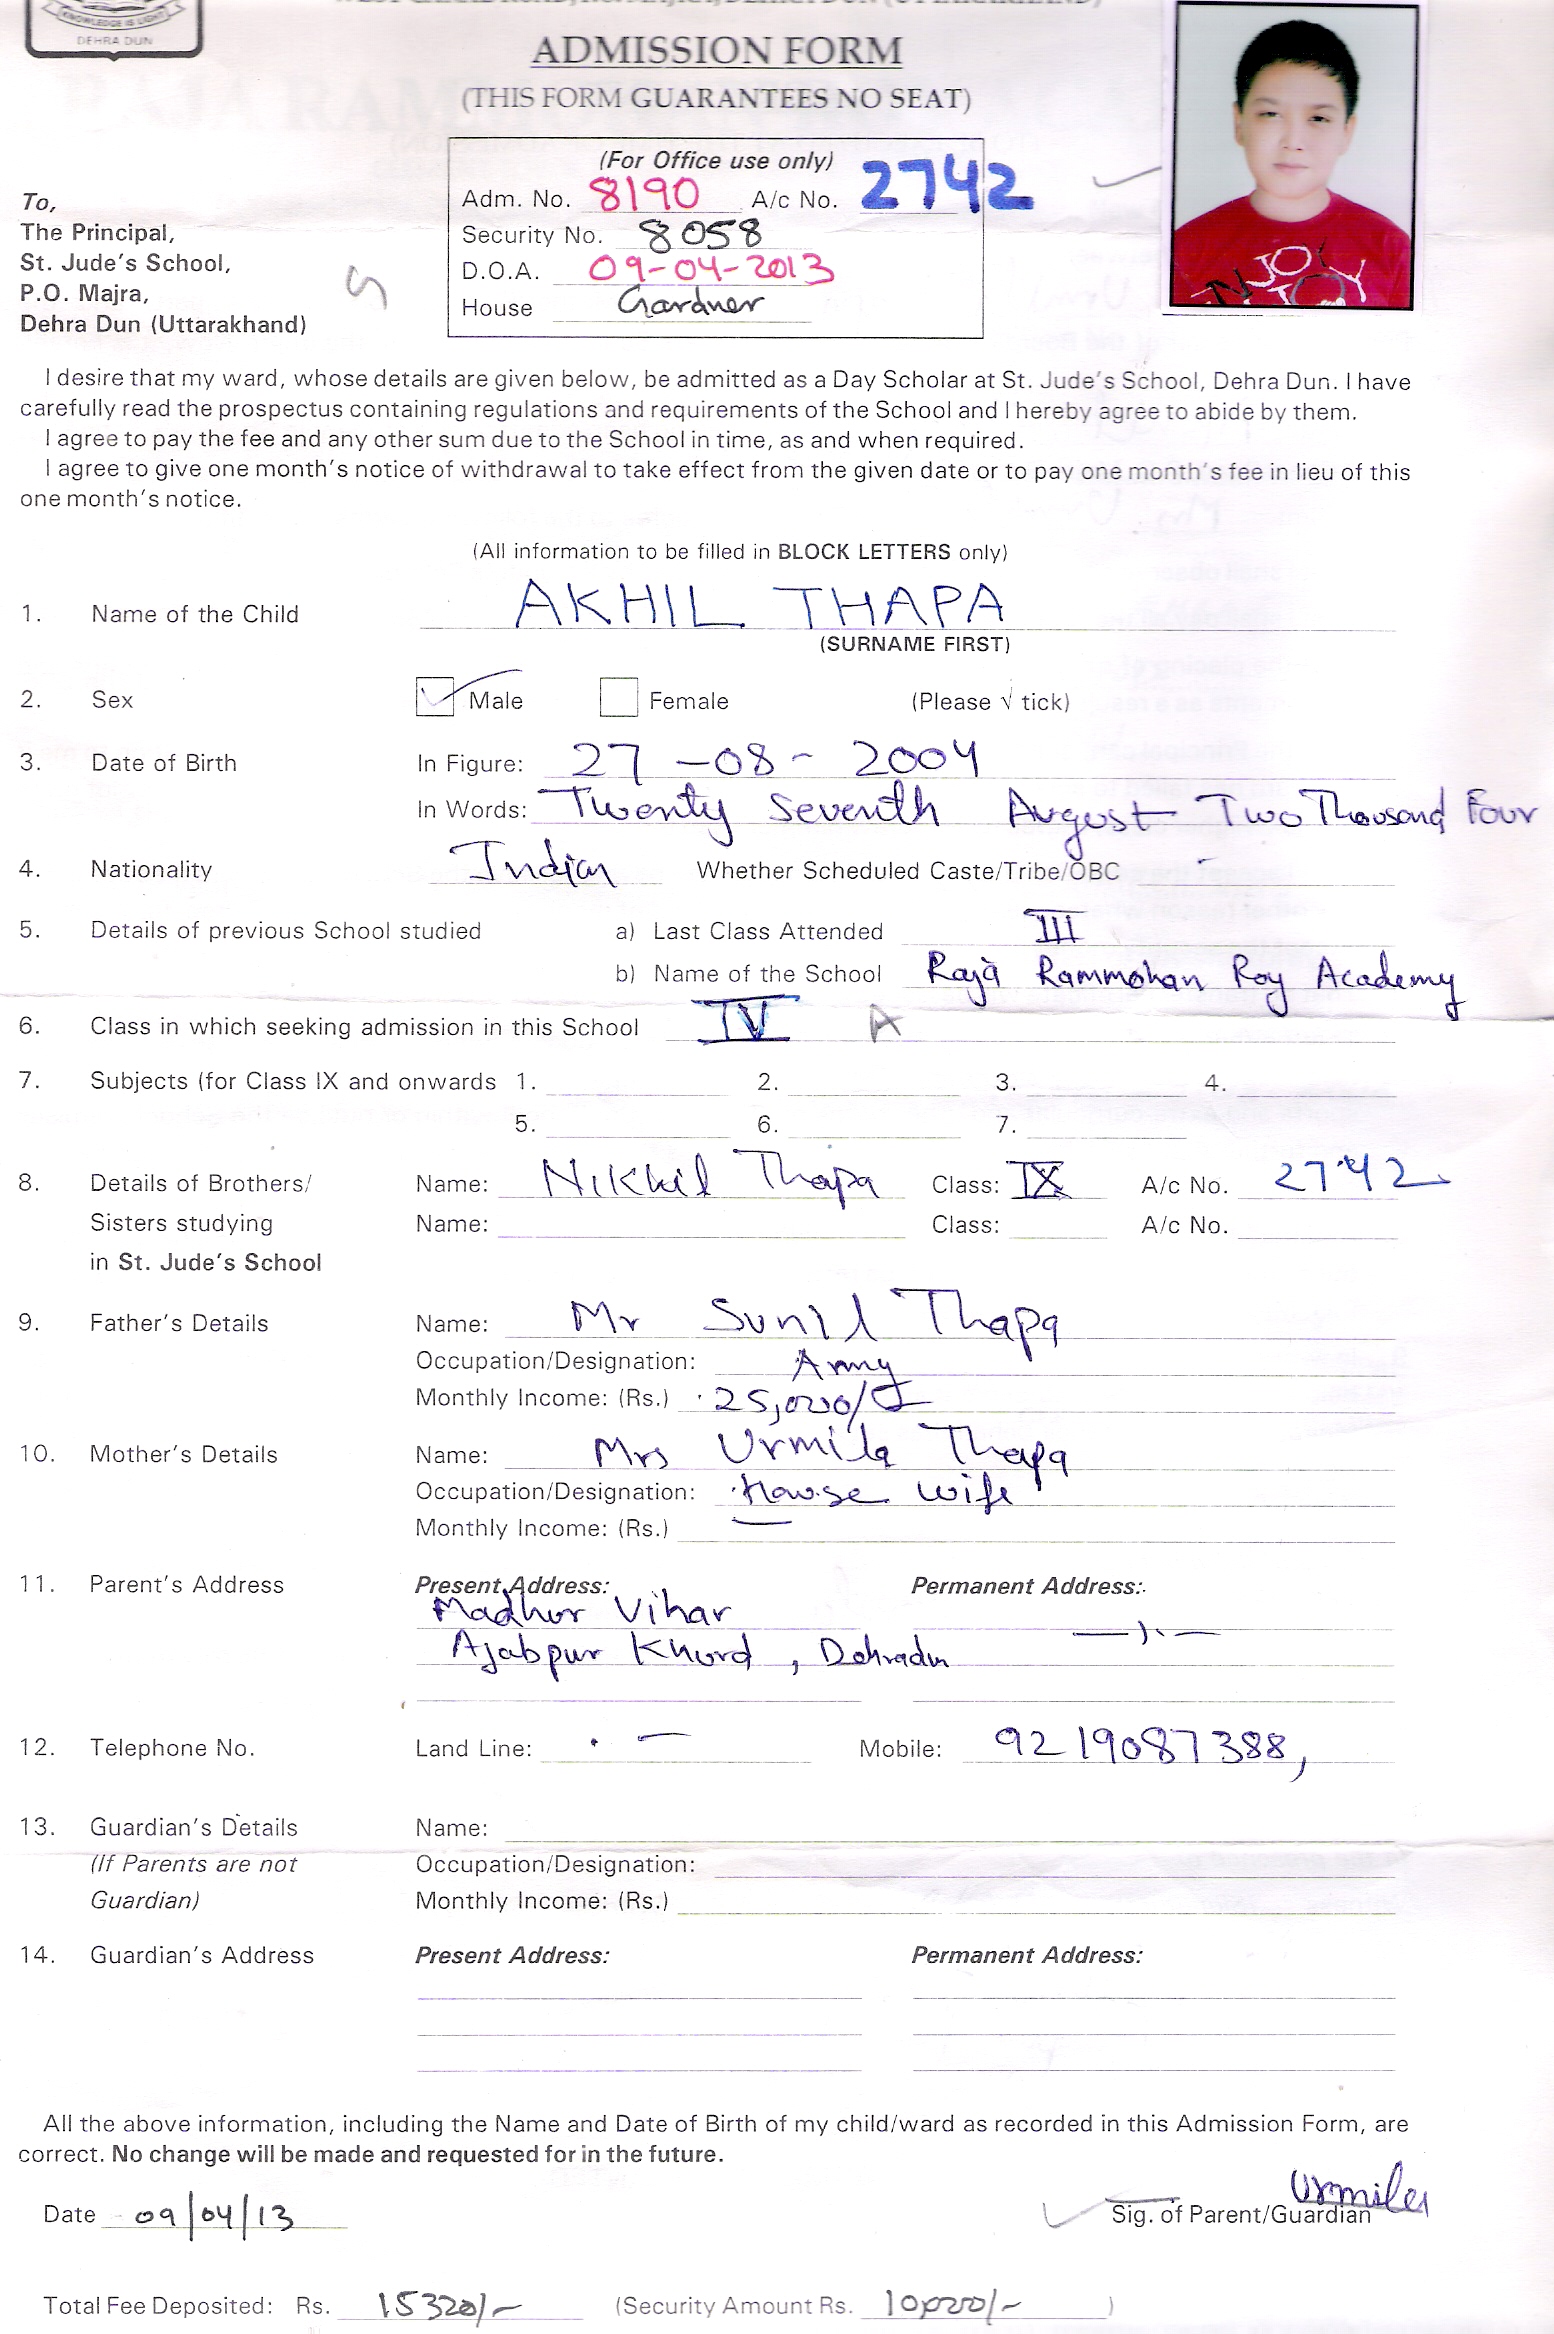 KNOWLEDGE IS LIGHT
DEHRA DUN
ADMISSION FORM
(THIS FORM GUARANTEES NO SEAT)
(For Office use only)
Adm. No. 8190 A/c No. 2742
Security No. 8058
D.O.A. 09-04-2013
House Gardner
To,
The Principal,
St. Jude's School,
P.O. Majra,
Dehra Dun (Uttarakhand)
ENJOY
I desire that my ward, whose details are given below, be admitted as a Day Scholar at St. Jude's School, Dehra Dun. I have
carefully read the prospectus containing regulations and requirements of the School and I hereby agree to abide by them.
I agree to pay the fee and any other sum due to the School in time, as and when required.
I agree to give one month's notice of withdrawal to take effect from the given date or to pay one month's fee in lieu of this
one month's notice.
(All information to be filled in BLOCK LETTERS only)
1. Name of the Child AKHIL THAPA
(SURNAME FIRST)
2. Sex ✓ Male Female (Please √ tick)
3. Date of Birth In Figure: 27-08-2004
In Words: Twenty Seventh August Two Thousand Four
4. Nationality Indian Whether Scheduled Caste/Tribe/OBC -
5. Details of previous School studied a) Last Class Attended III
b) Name of the School Raja Rammohan Roy Academy
6. Class in which seeking admission in this School IV A
7. Subjects (for Class IX and onwards 1. 2. 3. 4.
5. 6. 7.
8. Details of Brothers/ Name: Nikhil Thapa Class: IX A/c No. 2742
Sisters studying Name: Class: A/c No.
in St. Jude's School
9. Father's Details Name: Mr Sunil Thapa
Occupation/Designation: Army
Monthly Income: (Rs.) 25,000/-
10. Mother's Details Name: Mrs Urmila Thapa
Occupation/Designation: House wife
Monthly Income: (Rs.) —
11. Parent's Address Present Address: Permanent Address:
Madhur Vihar
Ajabpur Khurd, Dehradun
12. Telephone No. Land Line: — Mobile: 9219087388,
13. Guardian's Details Name:
(If Parents are not Occupation/Designation:
Guardian) Monthly Income: (Rs.)
14. Guardian's Address Present Address: Permanent Address:
All the above information, including the Name and Date of Birth of my child/ward as recorded in this Admission Form, are
correct. No change will be made and requested for in the future.
Urmila
Date 09/04/13 Sig. of Parent/Guardian
Total Fee Deposited: Rs. 15320/- (Security Amount Rs. 10,000/- )